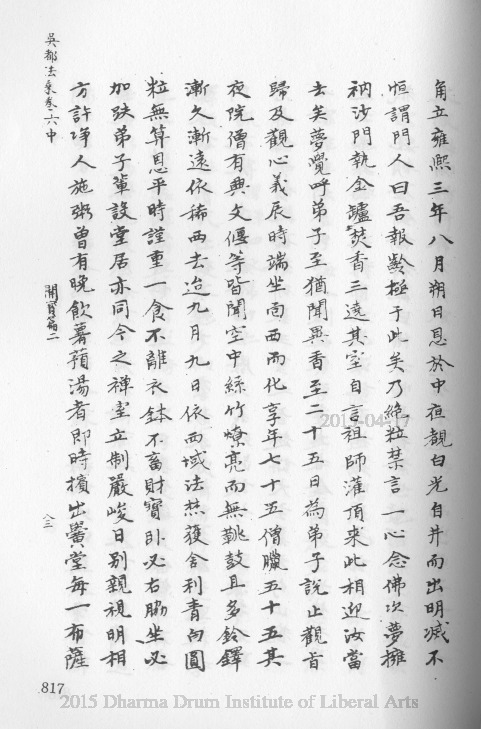 角立雍熙三年八月朔日恩於中夜覩白光自井而出明滅不
恒謂門人曰吾報齡極于此矣乃絶粒禁言一心念佛次夢擁
衲沙門執金鑪焚香三遶其室自言祖師灌頂來此相迎汝當
去矣夢覺呼弟子至猶聞異香至二十五日為弟子說止觀旨
歸及觀心義辰時端坐面西而化享年七十五僧臘五十五其
夜院僧有興文偃等皆聞空中絲竹嘹亮而無鞉鼓且多鈴鐸
漸久漸遠依稀西去迨九月九日依西域法焚獲舍利青白圓
粒無算恩平時謹重一食不離衣鉢不畜財寶卧必右脇坐必
加趺弟子輩設堂居亦同今之禪室立制嚴峻日別親視明相
方許淨人施粥曽有晚飲薯蕷湯者即時擯出黌堂每一布薩
吳都法乘卷六中
開寶篇二
八三
817
2015-04-17
2015 Dharma Drum Institute of Liberal Arts